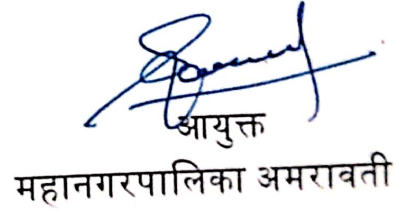 आयुक्त
महानगरपालिका अमरावती